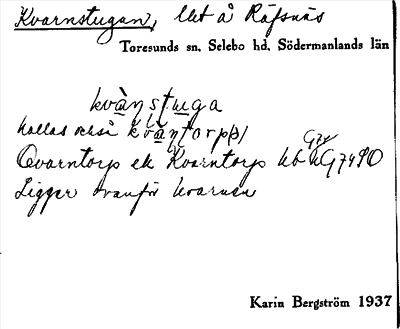 Kvarnstugan, lht å Räfsnäs
Toresunds sn, Selebo hd, Södermanlands län
kvànstuga
kallas också kvàntorp(s)
Qvarntorp ek Kvarntorp hb
Ligger ovanför kvarnen
Karin Bergström 1937